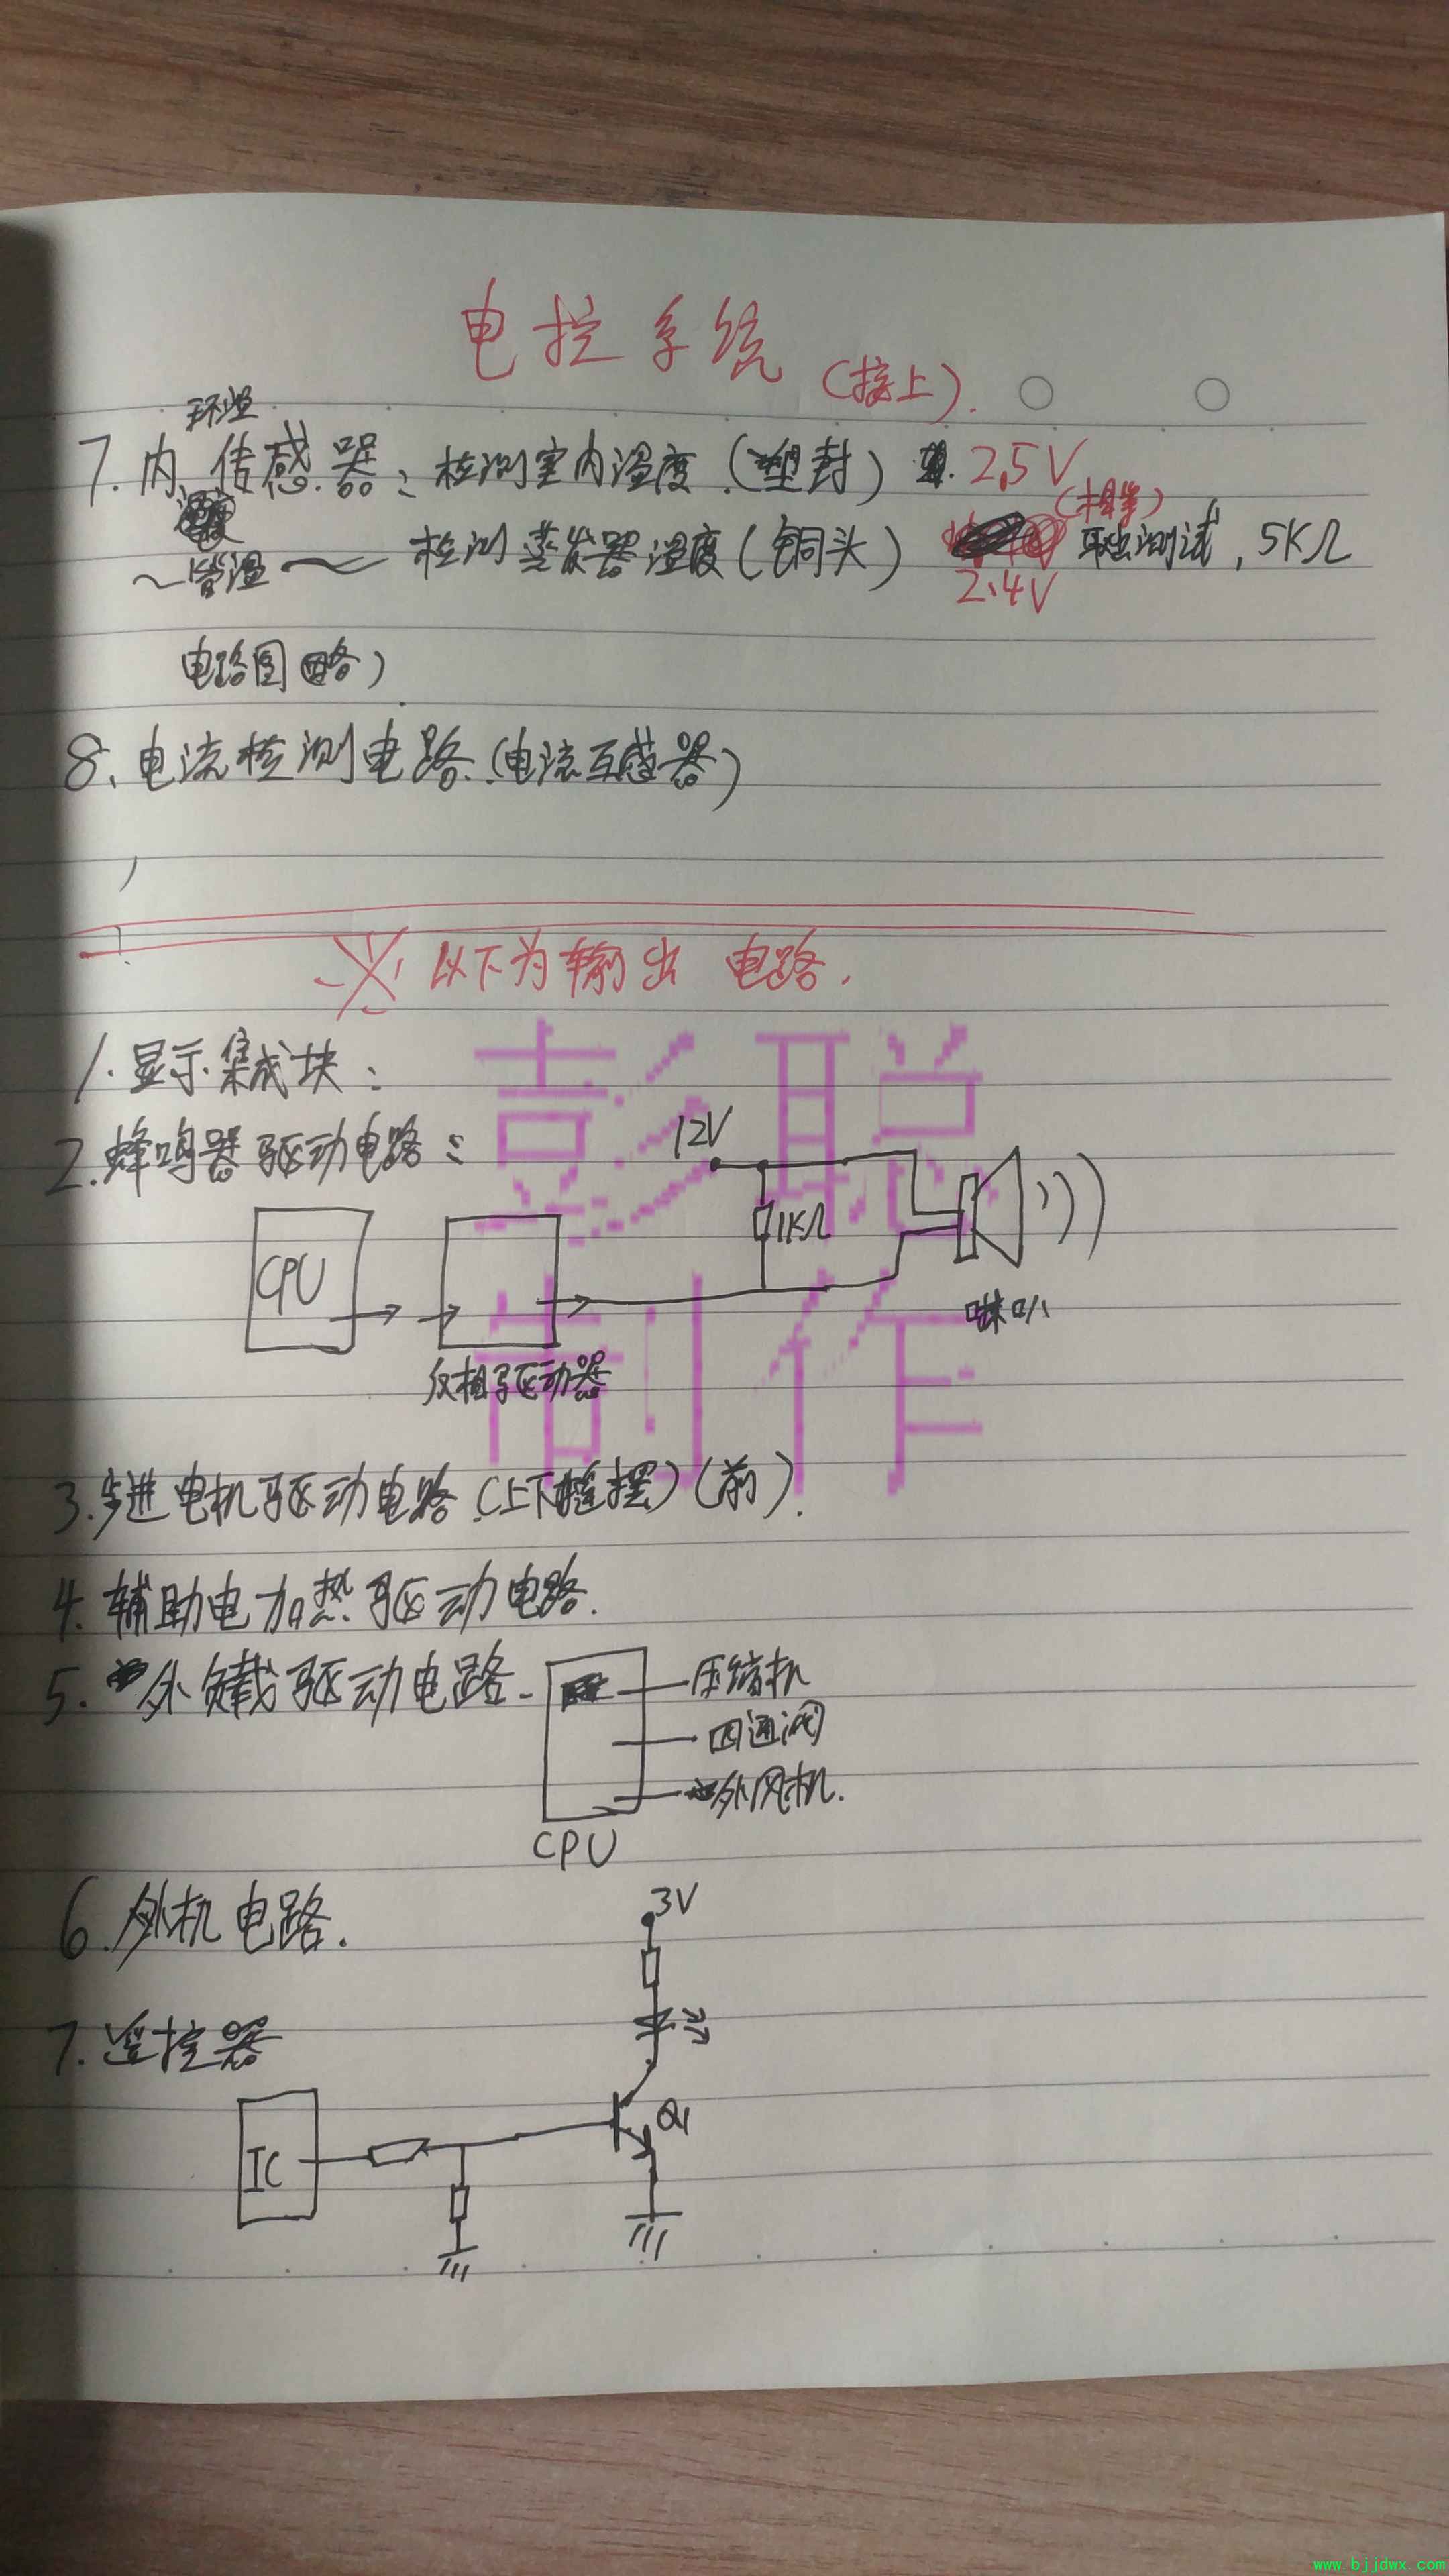 电控系统(接上).
环温
7.内、传感器:检测室内温度.(塑封) 2.5V
(相差)
~管温~检测蒸发器温度(铜头) 测试,5KΩ
2.4V
电路图略)
8、电流检测电路.(电流互感器)
※以下为输出电路.
1.显示集成块:
2.蜂鸣器驱动电路:
12V
1KΩ
CPU
反相驱动器
3.步进电机驱动电路.(上下摇摆)(前).
4.辅助电加热驱动电路.
5.外负载驱动电路-
压缩机
四通阀
外风机.
CPU
6.外机电路.
3V
7.遥控器
Q1
IC
彭聪
制作
www.bjjdwx.com